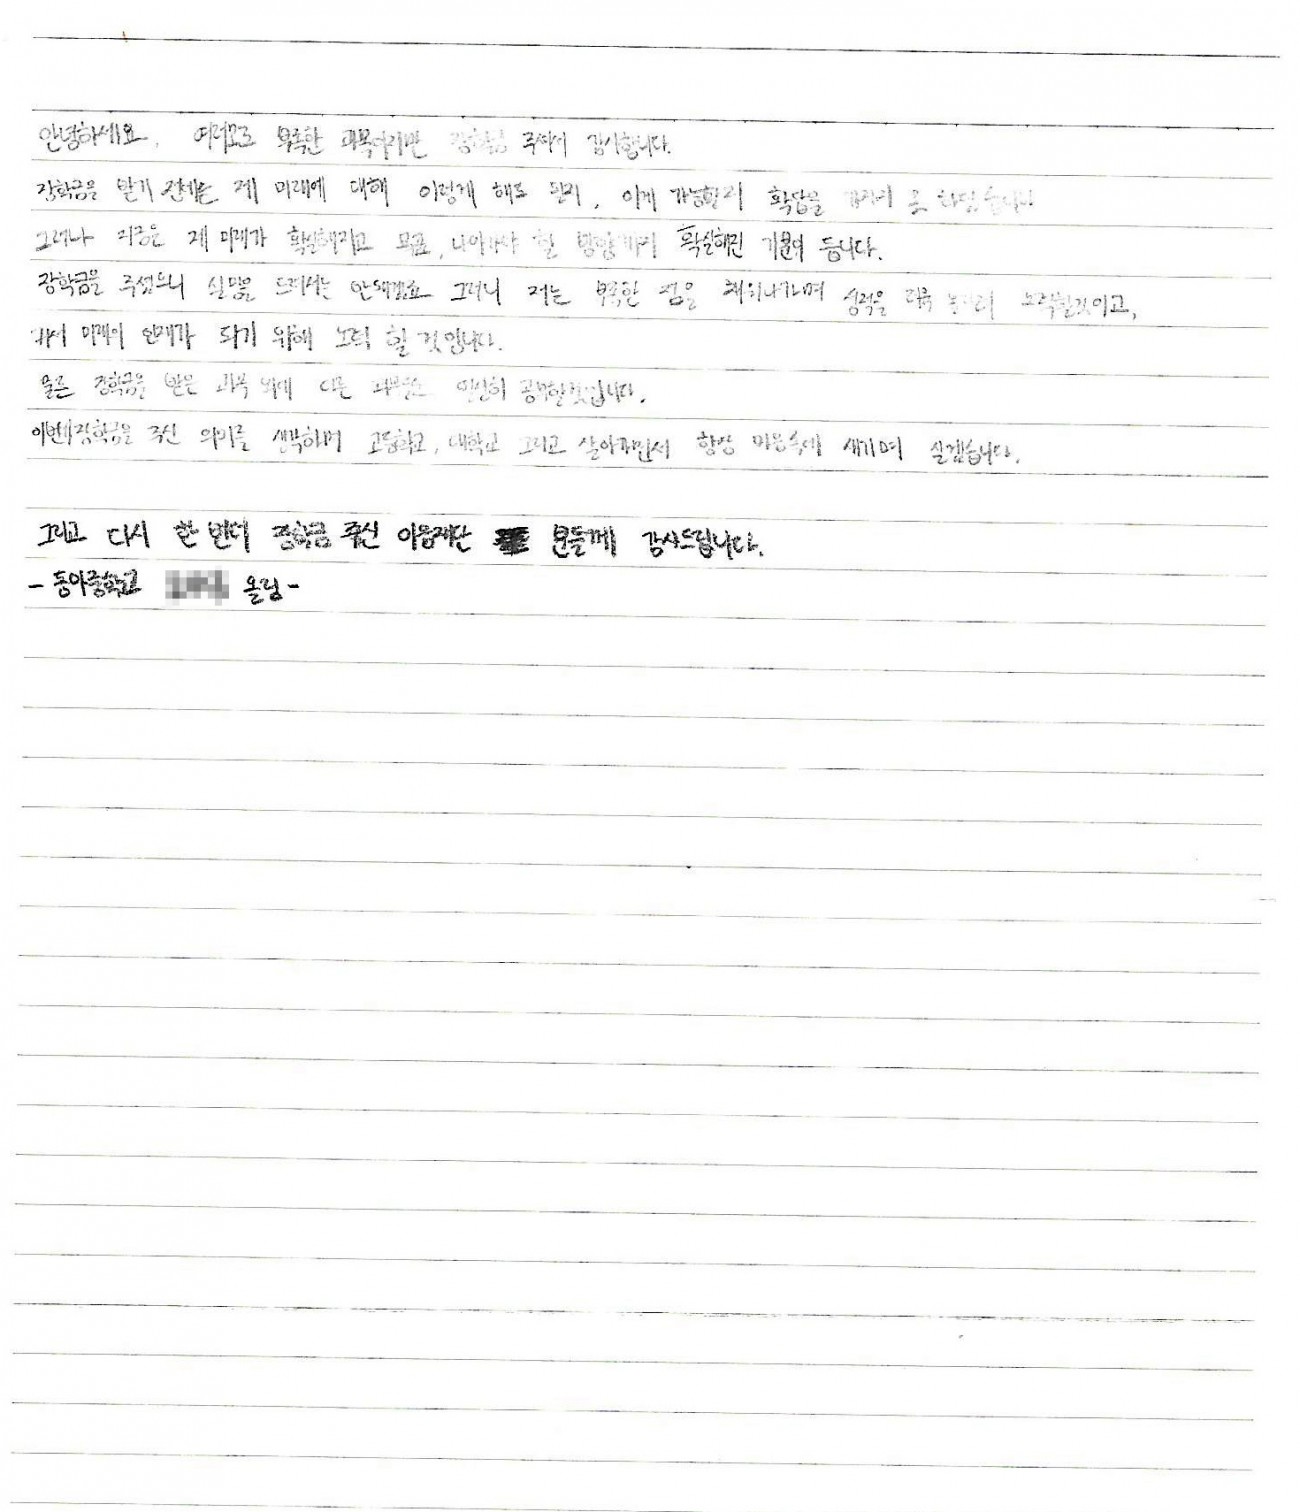 안녕하세요. 여러모로 부족한 과목이지만 장학금 주셔서 감사합니다.
장학금을 받기 전에는 제 미래에 대해 이렇게 해도 될지, 이게 가능할지 확답을 가지지 못 하였습니다
그러나 지금은 제 미래가 확실해지고 목표, 나아가야 할 방향까지 확실해진 기분이 듭니다.
장학금을 주셨으니 실망을 드려서는 안돼겠죠 그러니 저는 부족한 점을 채워나가며 성적을 더욱 높이려 노력할것이고,
미래의 인재가 되기 위해 노력 할 것입니다.
물론 장학금을 받은 과목 외에 다른 과목들도 열심히 공부할것입니다.
이번에 장학금을 주신 의미를 생각하며 고등학교, 대학교 그리고 살아가면서 항상 마음속에 새기며 살겠습니다.
그리고 다시 한 번더 장학금 주신 이음재단 분들께 감사드립니다.
- 동아중학교 올림 -